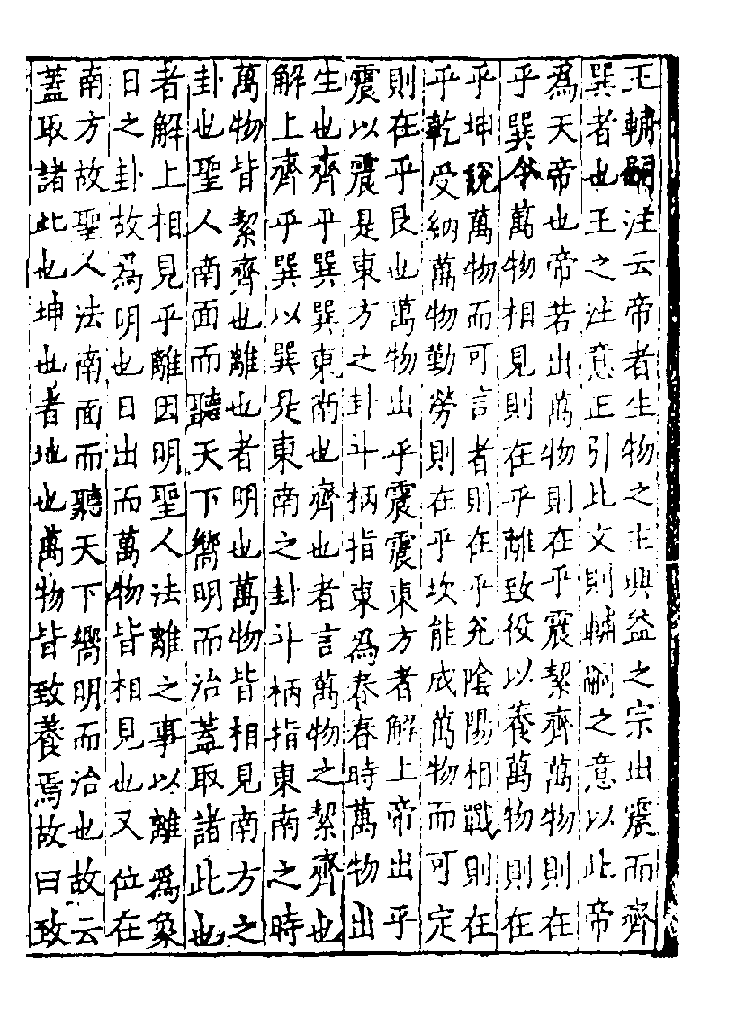 王輔嗣注云帝者生物之主興益之宗出震而齊
巽者也王之注意正引此文則輔嗣之意以此帝
為天帝也帝若出萬物則在乎震絜齊萬物則在
乎巽令萬物相見則在乎離致役以養萬物則在
乎坤說萬物而可言者則在乎兊陰陽相戰則在
乎乾受納萬物勤勞則在乎坎能成萬物而可定
則在乎艮也萬物出乎震震東方者解上帝出乎
震以震是東方之卦斗柄指東為春春時萬物出
生也齊乎巽巽東南也齊也者言萬物之絜齊也
解上齊乎巽以巽是東南之卦斗柄指東南之時
萬物皆絜齊也離也者明也萬物皆相見南方之
卦也聖人南面而聽天下嚮明而治蓋取諸此也
者解上相見乎離因明聖人法離之事以離為象
日之卦故為明也日出而萬物皆相見也又位在
南方故聖人法南面而聽天下嚮明而治也故云
蓋取諸此也坤也者地也萬物皆致養焉故曰致